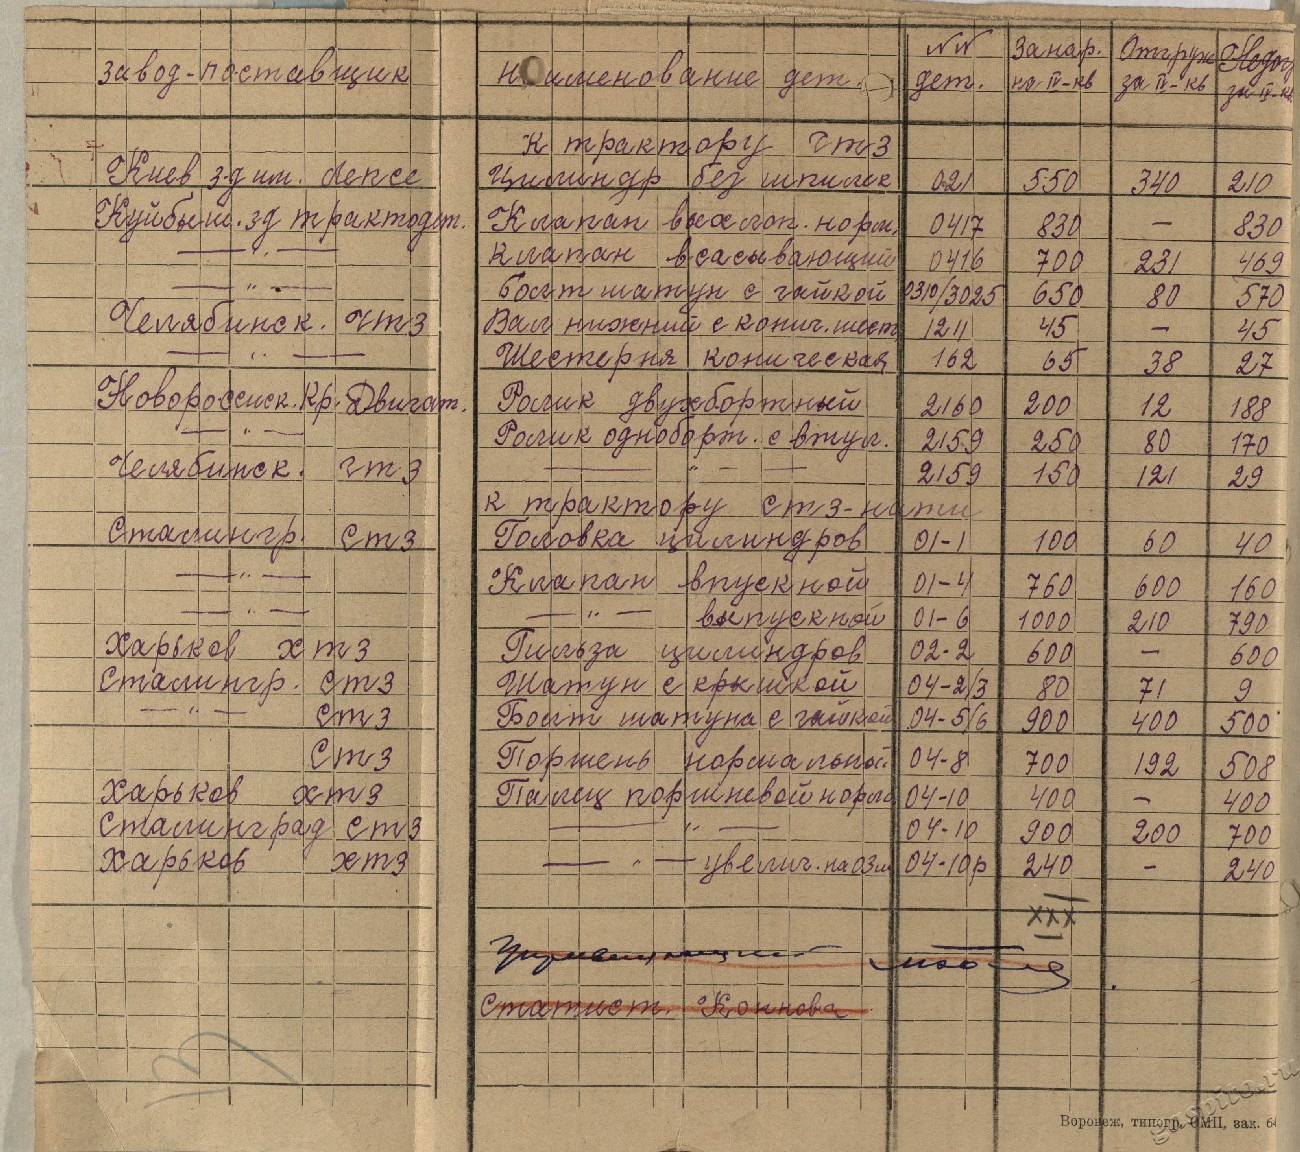 Завод-поставщик Наименование дет. NN дет. Занар. на IV-кв Отгруж за IV-кв Недог за IV-кв
К трактору ЧТЗ
Киев з-д им. Лепсе Цилиндр без шпилек 021 550 340 210
Куйбыш. зд трактодет. Клапан выхлоп. норм. 0417 830 — 830
— " — Клапан всасывающий 0416 700 231 469
— " — Болт шатун с гайкой 0310/3025 650 80 570
Челябинск. ЧТЗ Вал нижний с конич. шест 1211 45 — 45
— " — Шестерня коническая 162 65 38 27
Новороссийск. Кр. Двигат. Ролик двухбортный 2160 200 12 188
— " — Ролик одноборт. с втул. 2159 250 80 170
Челябинск. ЧТЗ — " — — 2159 150 121 29
К трактору СТЗ-нати
Сталингр. СТЗ Головка цилиндров 01-1 100 60 40
— " — Клапан впускной 01-4 760 600 160
— " — — " — выпускной 01-6 1000 210 790
Харьков ХТЗ Гильза цилиндров 02-2 600 — 600
Сталингр. СТЗ Шатун с крышкой 04-2/3 80 71 9
— " — СТЗ Болт шатуна с гайкой 04-5/6 900 400 500
СТЗ Поршень нормальной. 04-8 700 192 508
Харьков ХТЗ Палец поршневой норм 04-10 400 — 400
Сталинград СТЗ — " — 04-10 900 200 700
Харьков ХТЗ — " — увелич. на 03м 04-10р 240 — 240
XXX
Управляющий
Статист. Коннова
Воронеж, типогр. ОМЦ, зак. 64
gaspito.ru